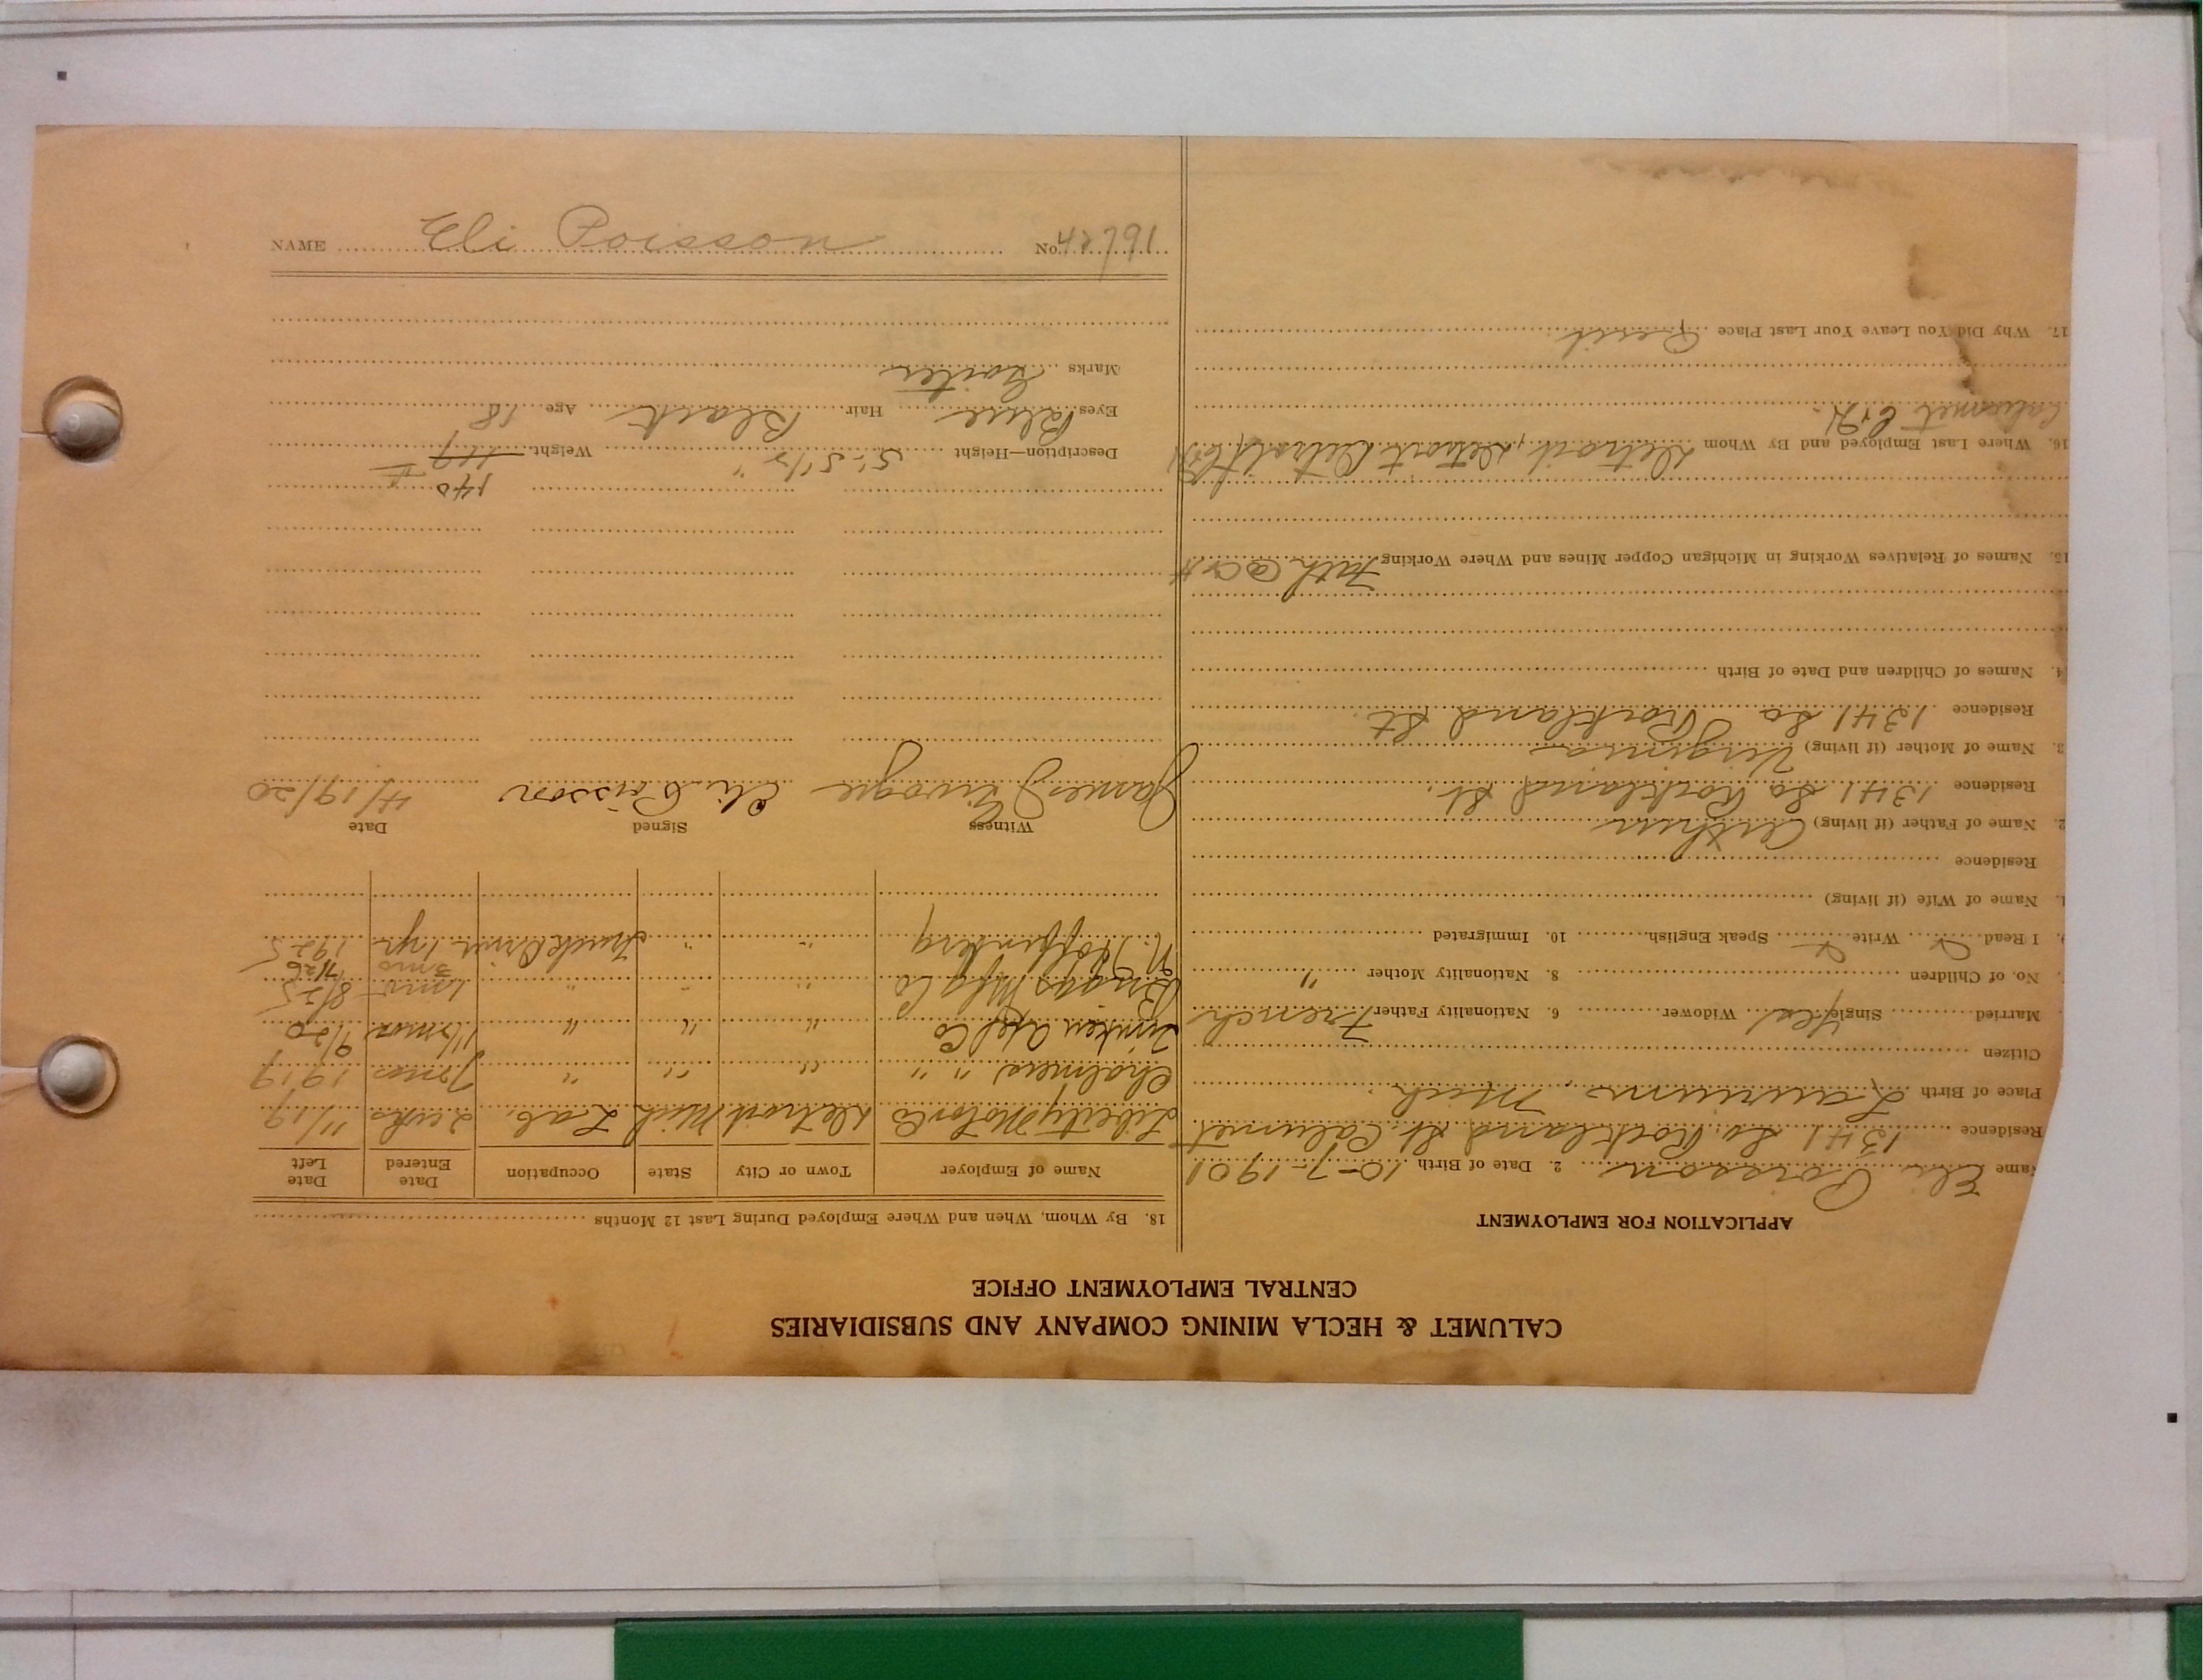 CALUMET & HECLA MINING COMPANY AND SUBSIDIARIES
CENTRAL EMPLOYMENT OFFICE
APPLICATION FOR EMPLOYMENT
Name Eli Poisson 2. Date of Birth 10-7-1901
Residence 1341 So. Rockland St. Calumet
Place of Birth Laurium, Mich.
Citizen
Married Single Yes Widower 6. Nationality Father French
No. of Children 8. Nationality Mother "
9. I Read Write Speak English 10. Immigrated
1. Name of Wife (if living)
Residence
2. Name of Father (if living) Arthur
Residence 1341 So. Rockland St.
3. Name of Mother (if living) Virginia
Residence 1341 So Rockland St.
4. Names of Children and Date of Birth
15. Names of Relatives Working in Michigan Copper Mines and Where Working Fath @ C & H
16. Where Last Employed and By Whom Detroit, Detroit
Calumet C & H.
17. Why Did You Leave Your Last Place Quit
18. By Whom, When and Where Employed During Last 12 Months
Name of Employer Town or City State Occupation Date Entered Date Left
Liberty Motor Co Detroit Mich Lab. 2 wks 11/19
Chalmers " " " " 7 mos 1919
Timken Axl Co " " " mos 9/20
Briggs Mfg Co " " " 1 mo 8/25
3 mo 7/26
N. " " Truck Driver 1 yr 1925
Witness Signed Date
James Eli Poisson 4/19/20
140
Description—Height 5'-5 1/2" Weight 119
Eyes Blue Hair Black Age 18
Marks Goiter
NAME Eli Poisson No. 42791